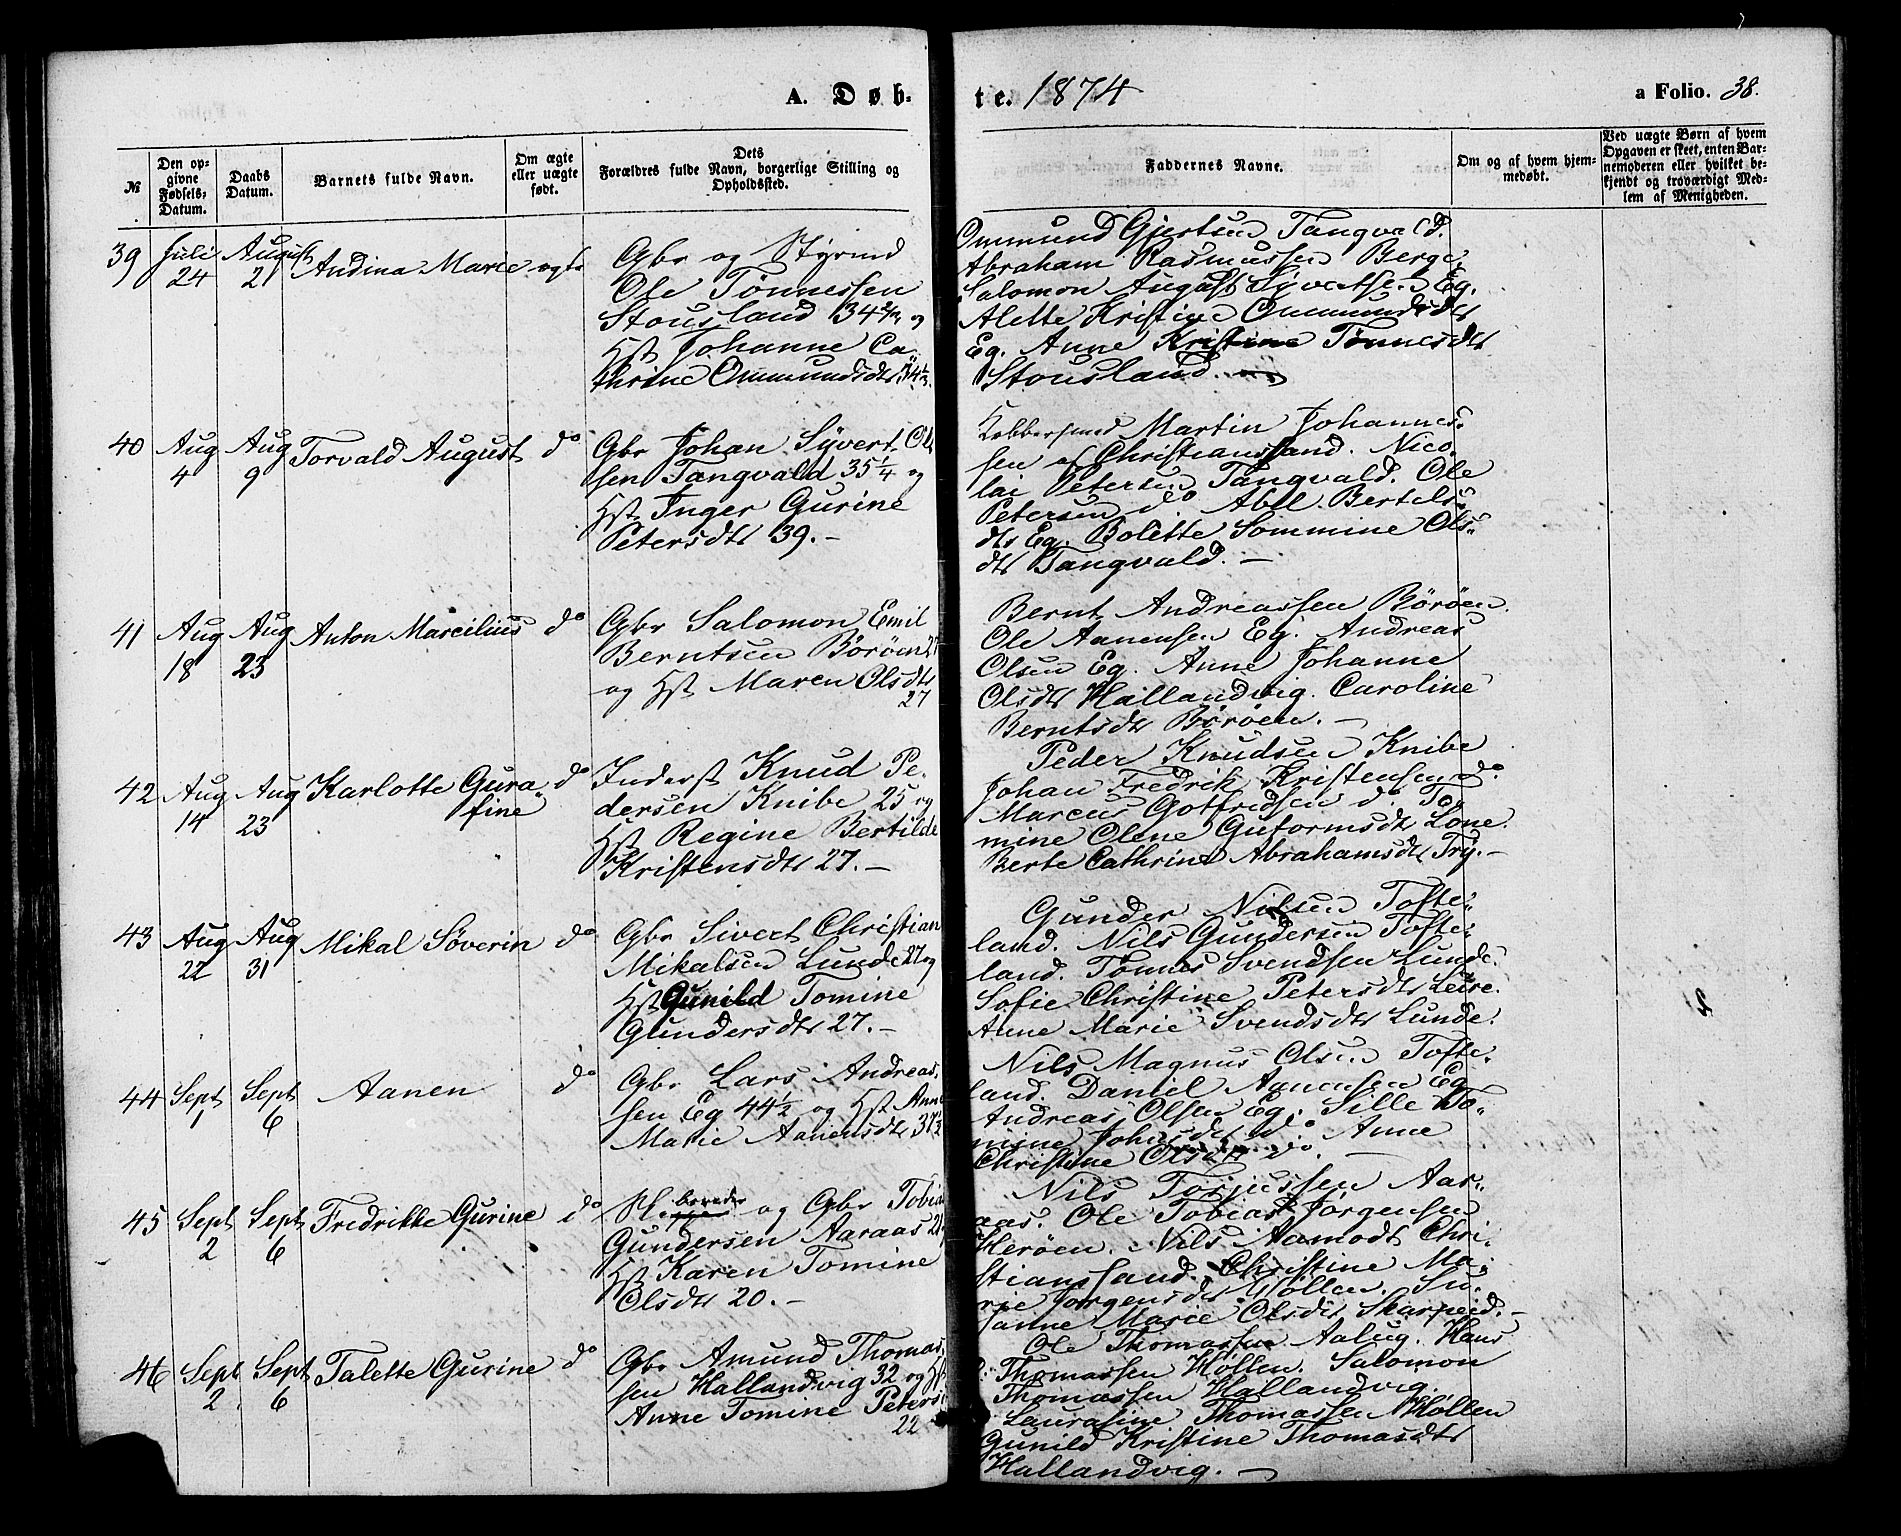 A. Døb-
te. 1874
a Folio. 38.
№
Den op-
givne
Fødsels-
Datum.
Daabs
Datum.
Barnets fulde Navn.
Om ægte
eller uægte
født.
Dets
Forældres fulde Navn, borgerlige Stilling og
Opholdssted.
Faddernes Navne.
Om og af hvem hjem-
medøbt.
Ved uægte Børn af hvem
Opgaven er skeet, enten Bar-
nemoderen eller hvilket be-
kjendt og troværdigt Med-
lem af Menigheden.
39 Juli 24 August 21 Andina Marie ægte
Gbr og Styrmd
Ole Tønnessen
Stousland 34 og
Hst Johanne Ca
thrine Ommundsdtr
Ommund Gjertsen Tangvald.
Abraham Rasmussen Berge.
Salomon August Syvertsen Eg.
Alette Kristine Ommundsdtr
Eg. Anne Kristine Tønnesdtr
Stousland.
40 Aug 4 Aug 9 Torvald August do
Gbr Johan Syvert Ol
sen Tangvald 35 1/4 og
Hst Inger Gurine
Petersdtr 39.-
Martin Johannes-
sen af Christianssand. Nico-
lai Petersen Tangvald. Ole
Petersen do. Abel Bertels-
dtr Eg. Bolette Sommine Ols-
dtr Tangvald.-
41 Aug 18 Aug 23 Anton Marcilius do
Gbr Salomon Emil
Berntsen Börøen
og Hst Maren Olsdtr
27
Bernt Andreassen Börøen.
Ole Aanensen Eg. Andreas
Olsen Eg. Anne Johanne
Olsdtr Hallandvig. Caroline
Berntsdtr Börøen.-
42 Aug 14 Aug 23 Karlotte Gura
fine do
Inderst Knud Pe-
dersen Knibe 25 og
Hst Regine Bertilde
Kristensdtr 27.-
Peder Knudsen Knibe
Johan Fredrik Kristensen do.
Marcus Gotfredsen do. To-
mine Olene Gutormsdtr Lone.
Berte Cathrine Abrahamsdtr Try.-
43 Aug 22 Aug 31 Mikal Söverin do
Gbr Sivert Christian
Mikalsen Lunde 27 og
Hst Gunild Tomine
Gundersdtr 27.-
Gunder Nilsen Tofte-
land. Nils Gundersen Tofte-
land. Tönnes Svendsen Lunde.
Sofie Christine Petersdtr Leire.
Anne Marie Svendsdtr Lunde.
44 Sept 1 Sept 6 Aanen do
Gbr Lars Andreas-
sen Eg 44 1/2 og Hst Anne
Marie Aanensdtr 37 1/2
Nils Magnus Olsen Tofte-
land. Daniel Aanensen Eg
Andreas Olsen Eg. Sille To-
mine Johnsdtr do. Anne
Christine Olsdtr do.-
45 Sept 2 Sept 6 Fredrikke Gurine do
og Gbr Tobias
Gundersen Aaraas
Hst Karen Tomine
Olsdtr 20.-
Nils Torjussen Aar-
aas. Ole Tobias Jörgensen
Herøen. Nils Aamodt Chri-
stianssand. Christine Ma-
rie Jörgensdtr Møllen. Su-
sanne Marie Olsdtr Skarpeid.-
46 Sept 2 Sept 6 Talette Gurine do
Gbr Amund Thomas-
sen Hallandvig 32 og Hst
Anne Tomine Peters
22
Ole Thomassen Aalug. Hans
Thomassen Høllen. Salomon
Thomassen Hallandvig.
Laurasine Thomassen Høllen
Gunild Kristine Thomasdtr
Hallandvig.-